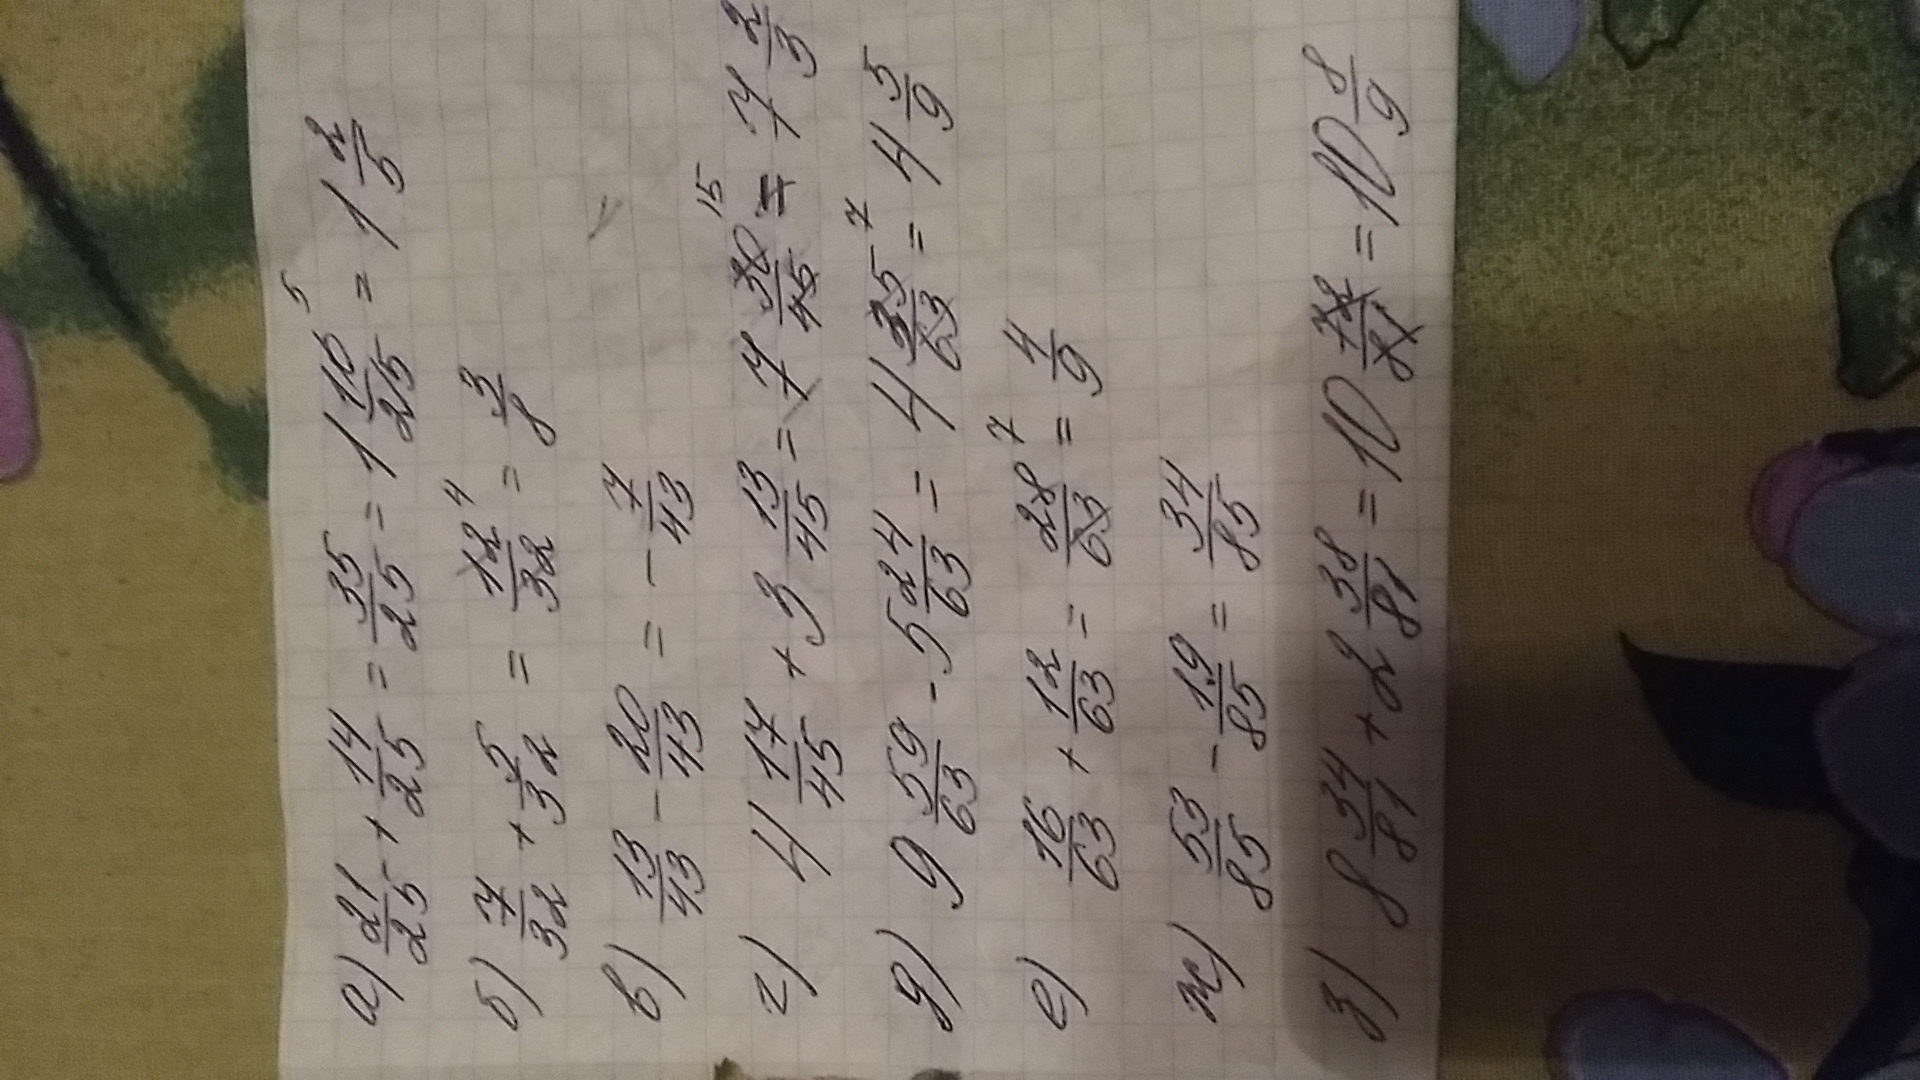 а) 21/25 + 14/25 = 35/25 = 1 10/25 5 = 1 2/5
б) 7/32 + 5/32 = 12/32 4 = 3/8
в) 13/43 - 20/43 = - 7/43
г) 4 17/45 + 3 13/45 = 7 30/45 15 = 7 2/3
д) 9 59/63 - 5 24/63 = 4 35/63 7 = 4 5/9
е) 16/63 + 12/63 = 28/63 7 = 4/9
ж) 53/85 - 19/85 = 34/85
з) 8 34/81 + 2 38/81 = 10 72/81 = 10 8/9